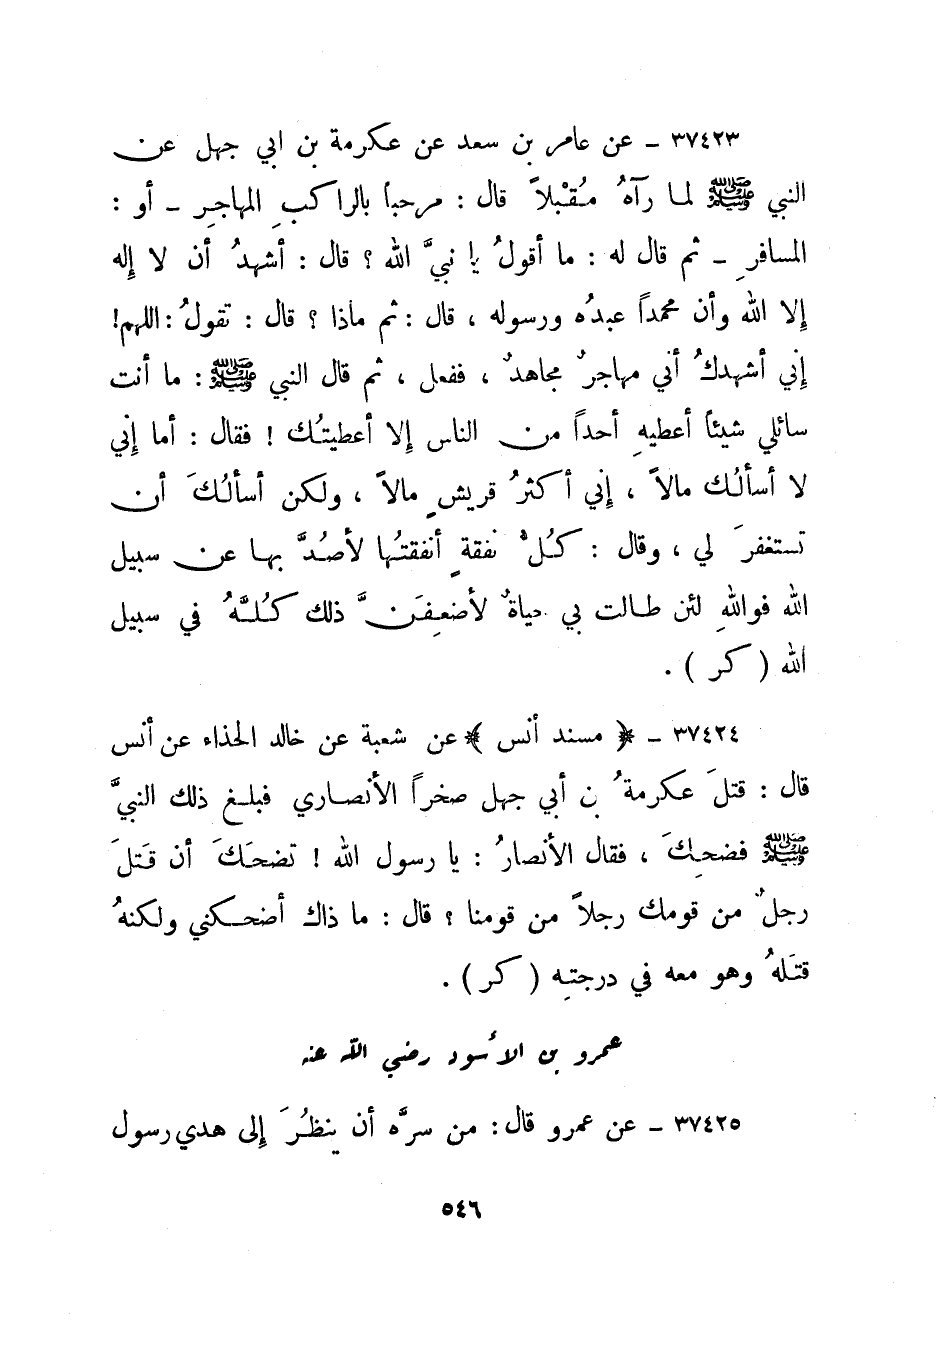 ٣٧٤٢٣ ـ عن عامر بن سعد عن عكرمة بن ابي جهل عن
النبي ﷺ لما رآهُ مُقْبلاً قال : مرحباً بالراكبِ المهاجرِ ـ أو :
المسافرِ ـ ثم قال له : ما أقولُ يا نبيَّ الله ؟ قال : أشهدُ أن لا إله
إلا الله وأن محمداً عبدُه ورسوله ، قال : ثم ماذا ؟ قال : تقولُ : اللهم!
إني أشهدكُ أني مهاجرٌ مجاهدٌ ، ففعل ، ثم قال النبي ﷺ : ما أنت
سائلي شيئاً أعطيهِ أحداً من الناس إلا أعطيتُك ! فقال : أما إني
لا أسألُك مالاً ، إني أكثرُ قريشٍ مالاً ، ولكن أسألُكَ أن
تستغفرَ لي ، وقال : كُلُّ نفقةٍ أنفقتُها لأصُدَّ بها عن سبيل
الله فواللهِ لئن طالت بي حياةٌ لأضعِفَنَّ ذلك كُلَّهُ في سبيل
الله ( كر ) .
٣٧٤٢٤ ـ ﴿ مسند أنس ﴾ عن شعبة عن خالد الحذاء عن أنس
قال : قتلَ عكرمةُ بن أبي جهل صخراً الأنصاري فبلغ ذلك النبيَّ
ﷺ فضحِكَ ، فقال الأنصارُ : يا رسول الله ! تضحَكَ أن قَتلَ
رجلٌ من قومك رجلاً من قومنا ؟ قال : ما ذاك أضحكني ولكنهُ
قتَلهُ وهو معه في درجتِه ( كر ) .
عمرو بن الأسود رضي الله عنه
٣٧٤٢٥ ـ عن عمرو قال : من سرَّه أن ينظُرَ إلى هدي رسول
٥٤٦